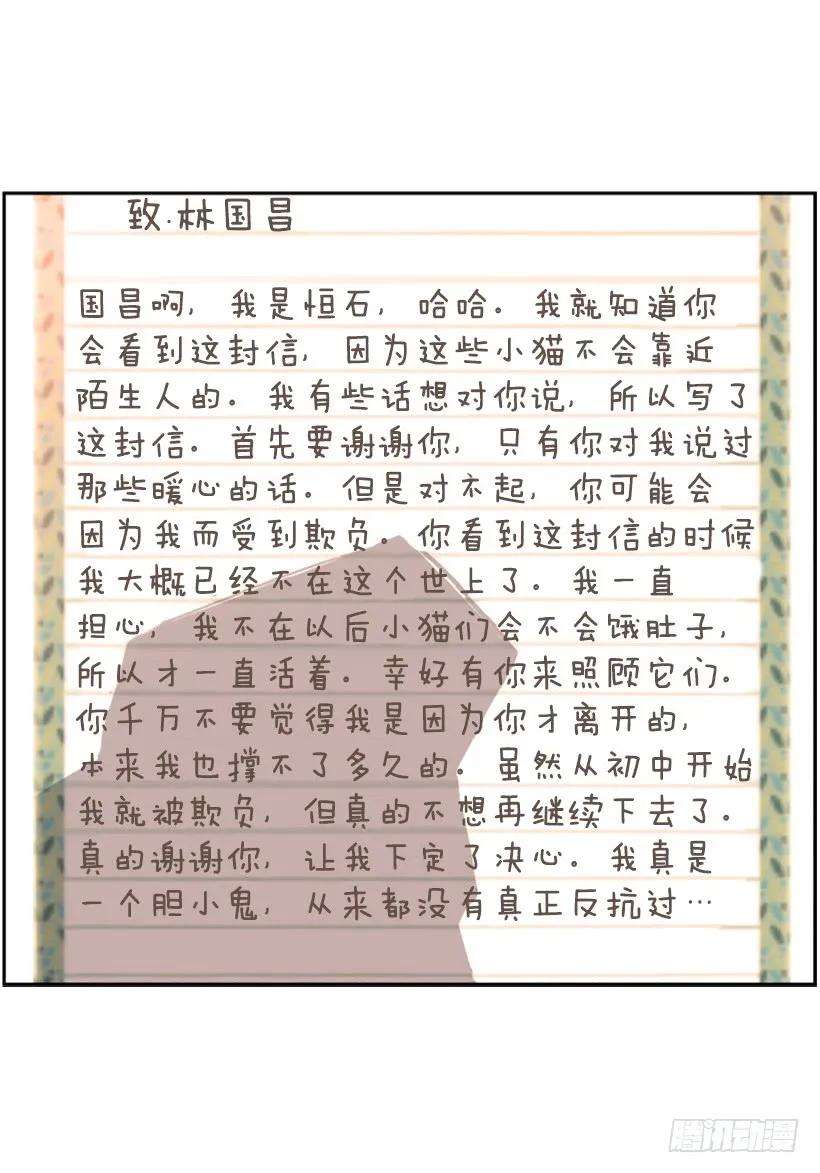 致·林国昌
国昌啊，我是恒石，哈哈。我就知道你
会看到这封信，因为这些小猫不会靠近
陌生人的。我有些话想对你说，所以写了
这封信。首先要谢谢你，只有你对我说过
那些暖心的话。但是对不起，你可能会
因为我而受到欺负。你看到这封信的时候
我大概已经不在这个世上了。我一直
担心，我不在以后小猫们会不会饿肚子，
所以才一直活着。幸好有你来照顾它们。
你千万不要觉得我是因为你才离开的，
本来我也撑不了多久的。虽然从初中开始
我就被欺负，但真的不想再继续下去了。
真的谢谢你，让我下定了决心。我真是
一个胆小鬼，从来都没有真正反抗过…
腾讯动漫